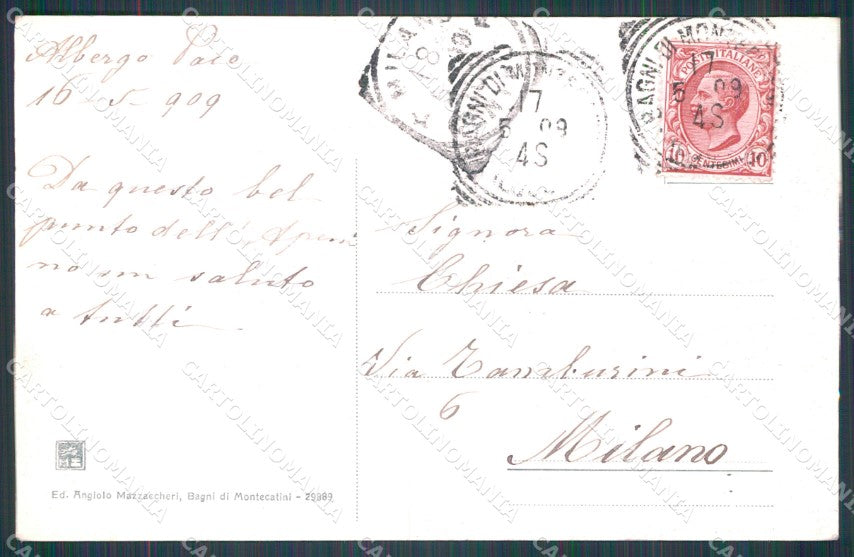 Albergo Pace
16 5 909
Da questo bel
punto dell' Apeni
no un saluto
a tutti
Ed. Angiolo Mazzaccheri, Bagni di Montecatini - 29889
MILANO
18
BAGNI DI MON
17
5 09
4S
BAGNI DI MON
17
5 09
4S
POSTE ITALIANE
10 CENTESIMI 10
Signora
Chiesa
Via Tamburini
6
Milano
CARTOLINOMANIA